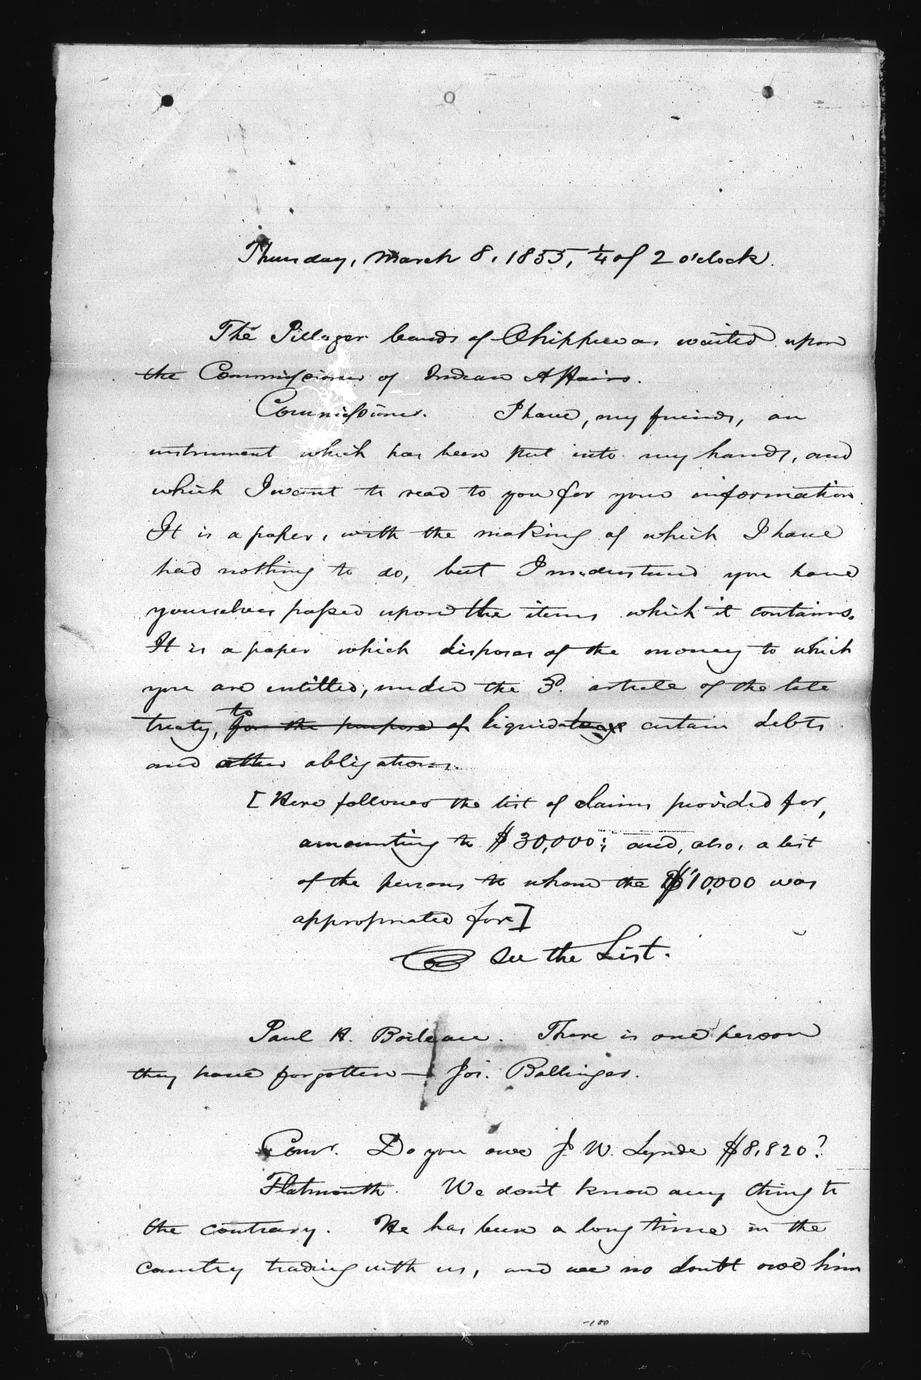 Thursday, March 8, 1855, ¼ of 2 o'clock.
The Pillager bands of Chippewas waited upon
the Commissioner of Indian Affairs.
Commissioner. I have, my friends, an
instrument which has been put into my hands, and
which I want to read to you for your information.
It is a paper, with the making of which I have
had nothing to do, but I understand you have
yourselves passed upon the items which it contains.
It is a paper which disposes of the money to which
you are entitled, under the 3d. article of the late
treaty, to for the purpose of liquidate certain debts
and other obligations.
[Here follows the list of claims provided for,
amounting to $30,000; and, also, a list
of the persons to whom the $10,000 was
appropriated for]
See the List.
Paul H. Boileau. There is one person
they have forgotten — Jos. Ballinger.
Comr. Do you owe J. W. Lynde $8,820?
Flatmouth. We don't know any thing to
the contrary. He has been a long time in the
country trading with us, and we no doubt owe him
-100